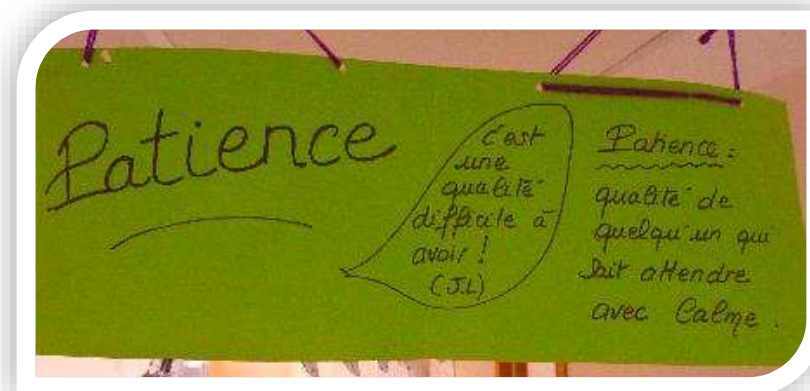 Patience
c'est
une
qualité
difficile à
avoir !
(J.L)
Patience :
qualité de
quelqu'un qui
sait attendre
avec Calme.